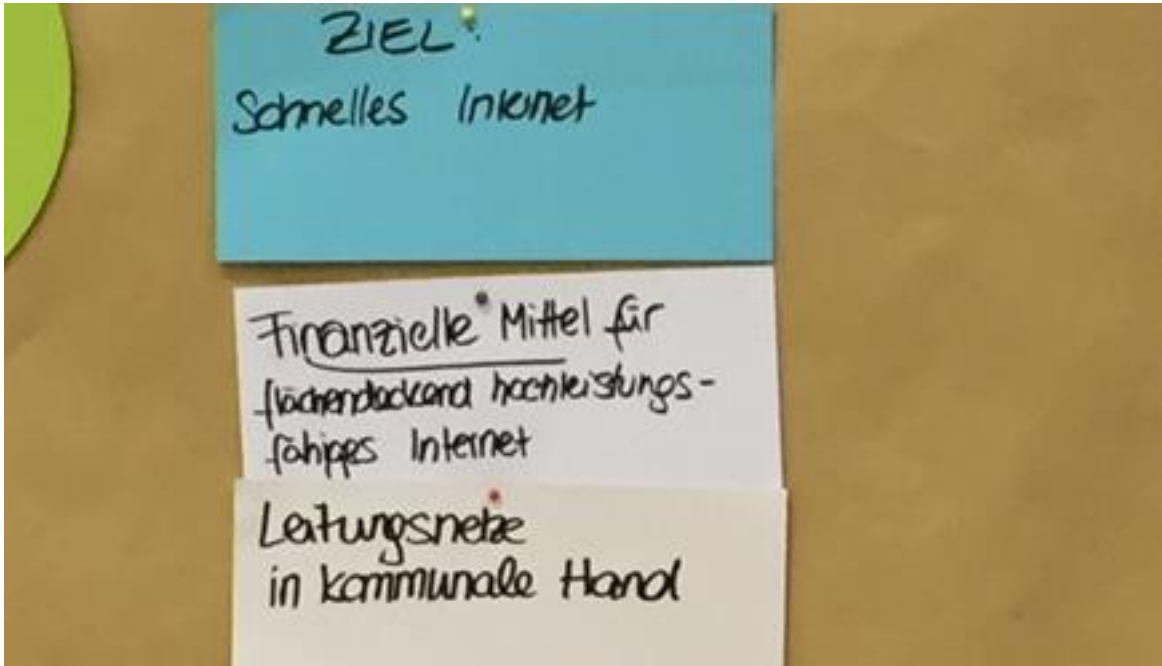 ZIEL:
Schnelles Internet
Finanzielle Mittel für
flächendeckend hochleistungs-
fähiges Internet
Leitungsnetze
in kommunale Hand